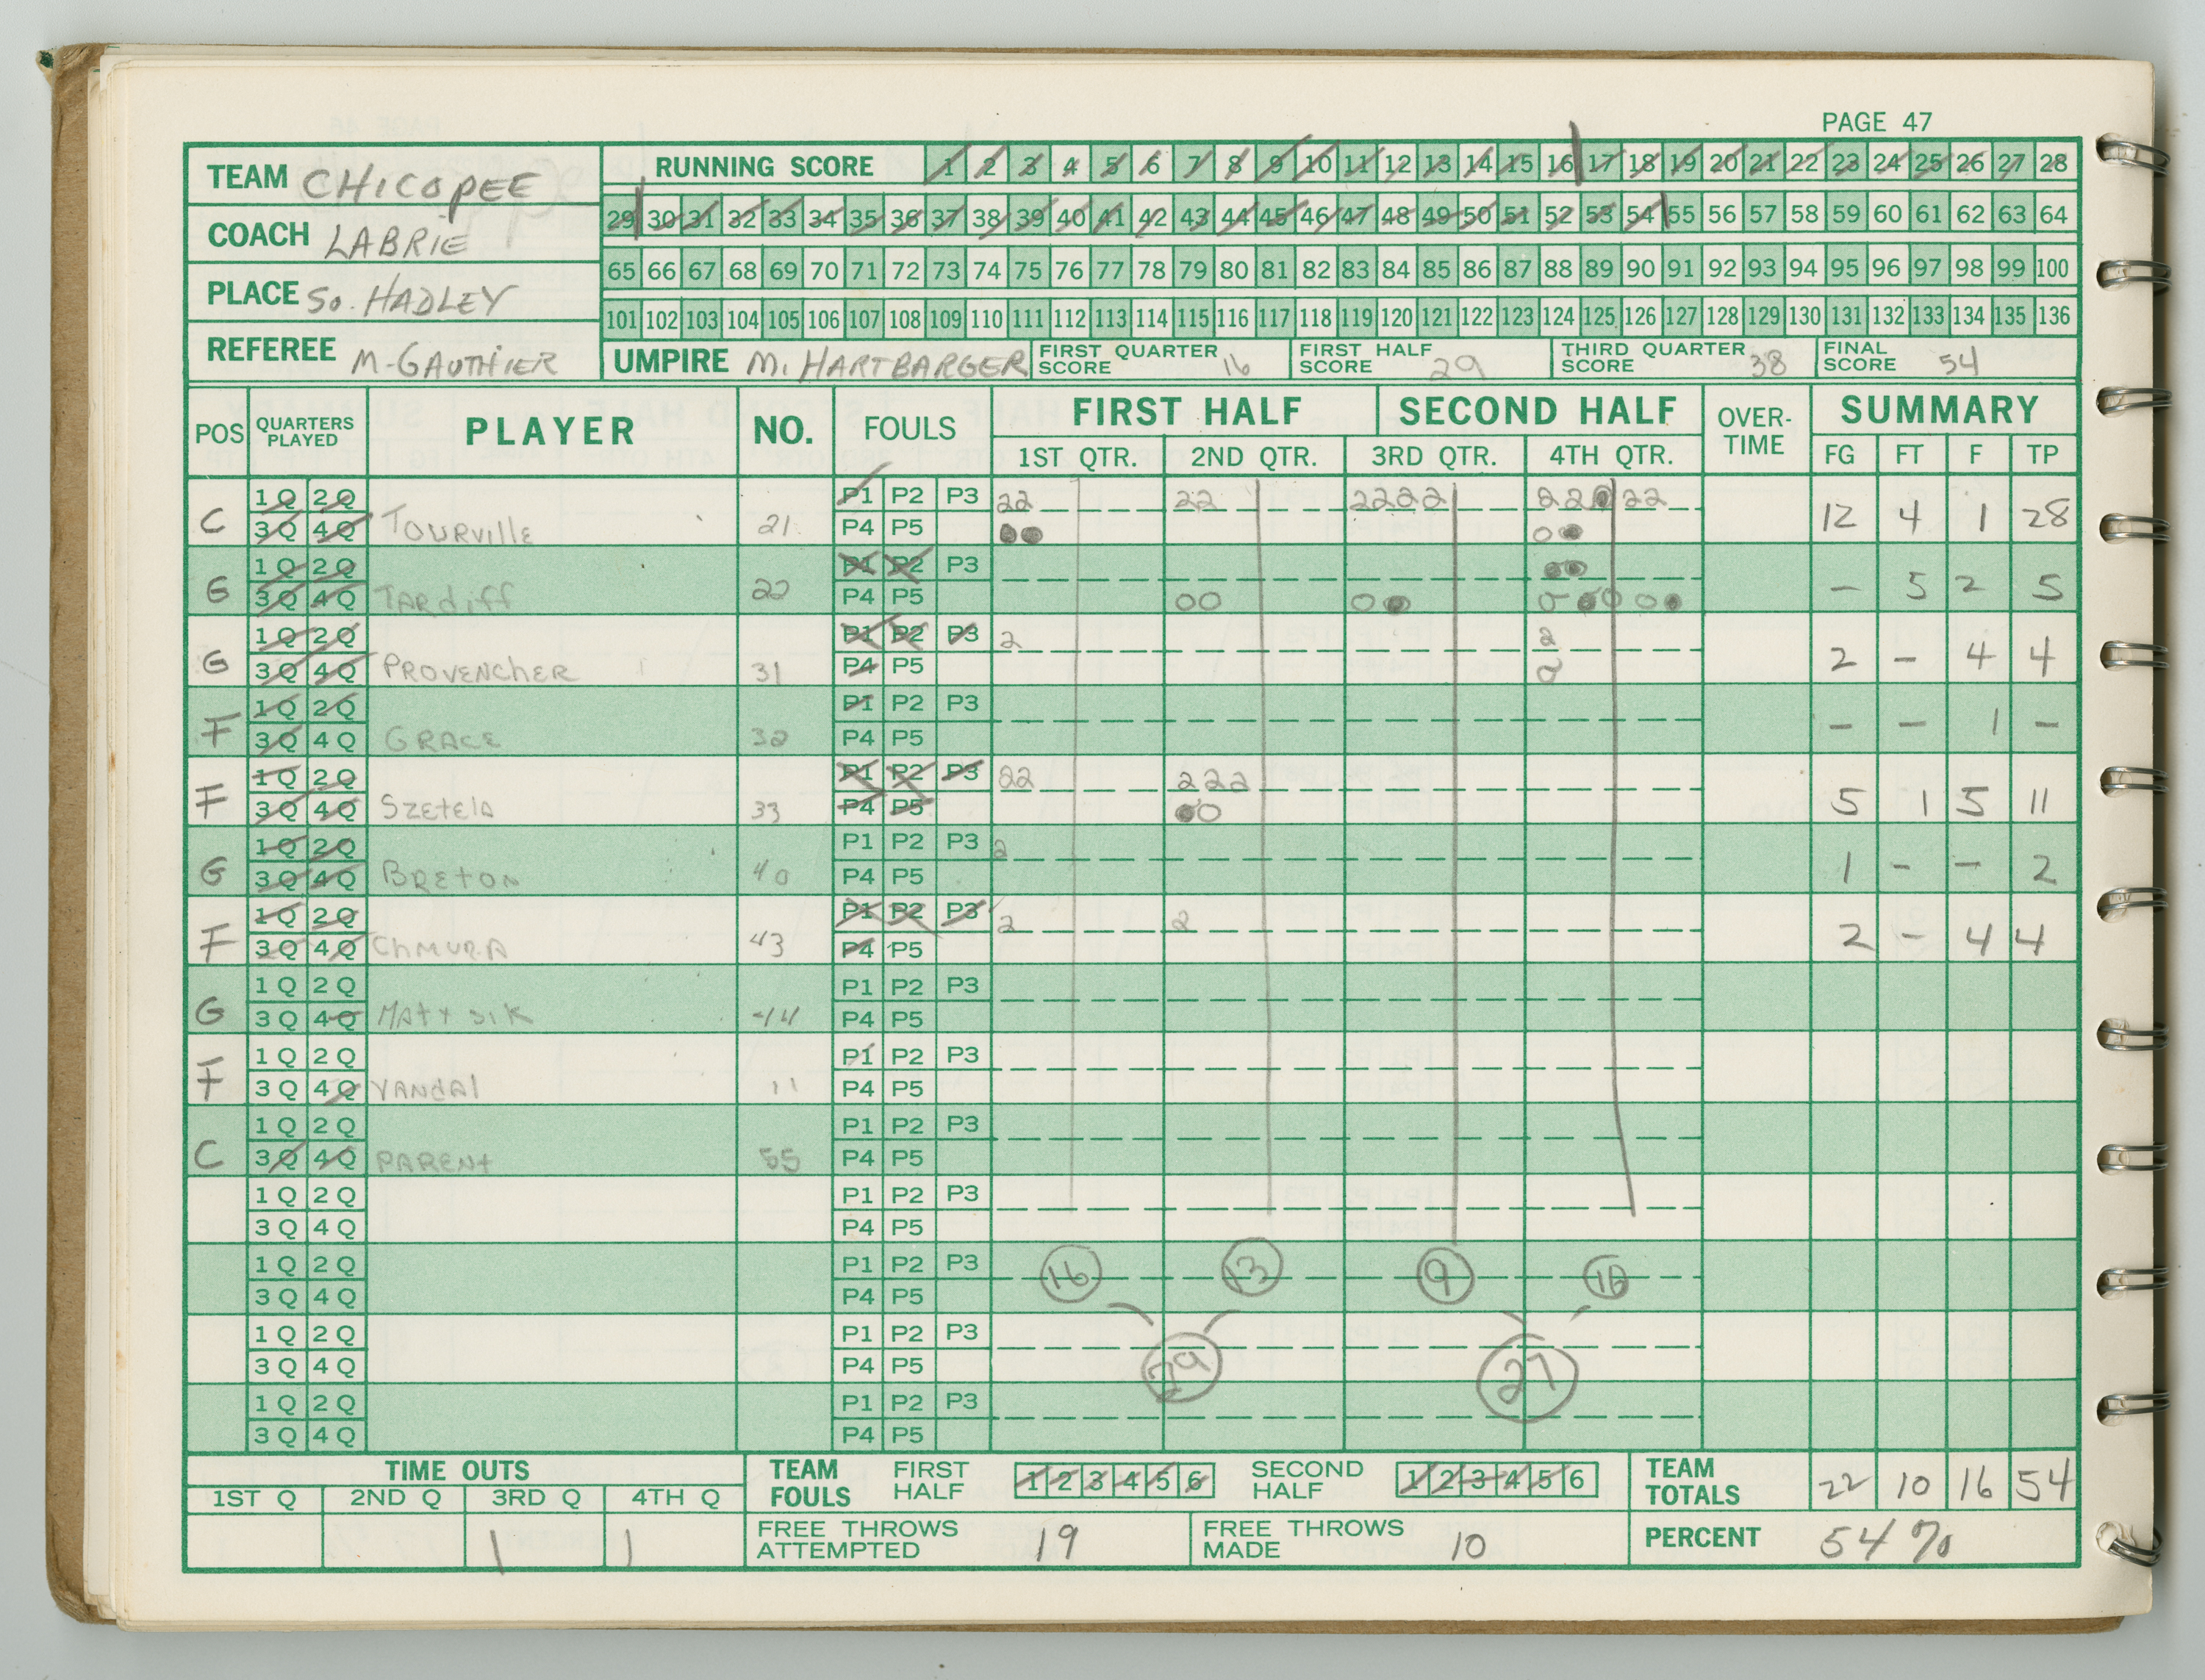 PAGE 47
TEAM CHICOPEE
COACH LABRIE
PLACE So. HADLEY
REFEREE M. GAUTHIER
RUNNING SCORE 1 2 3 4 5 6 7 8 9 10 11 12 13 14 15 16 17 18 19 20 21 22 23 24 25 26 27 28
29 30 31 32 33 34 35 36 37 38 39 40 41 42 43 44 45 46 47 48 49 50 51 52 53 54 55 56 57 58 59 60 61 62 63 64
65 66 67 68 69 70 71 72 73 74 75 76 77 78 79 80 81 82 83 84 85 86 87 88 89 90 91 92 93 94 95 96 97 98 99 100
101 102 103 104 105 106 107 108 109 110 111 112 113 114 115 116 117 118 119 120 121 122 123 124 125 126 127 128 129 130 131 132 133 134 135 136
UMPIRE M. HARTBARGER FIRST QUARTER SCORE 16 FIRST HALF SCORE 29 THIRD QUARTER SCORE 38 FINAL SCORE 54
POS QUARTERS PLAYED PLAYER NO. FOULS FIRST HALF SECOND HALF OVER-TIME SUMMARY
1ST QTR. 2ND QTR. 3RD QTR. 4TH QTR. FG FT F TP
1Q 2Q P1 P2 P3 22 22 2222 22 22
C 3Q 4Q TOURVILLE 21 P4 P5 12 4 1 28
1Q 2Q P1 P2 P3
G 3Q 4Q TARDIFF 22 P4 P5 00 - 5 2 5
1Q 2Q P1 P2 P3 2 2
G 3Q 4Q PROVENCHER 31 P4 P5 2 - 4 4
1Q 2Q P1 P2 P3
F 3Q 4Q GRACE 32 P4 P5 - - 1 -
1Q 2Q P1 P2 P3 22 222
F 3Q 4Q SZETELA 33 P4 P5 5 1 5 11
1Q 2Q P1 P2 P3 2
G 3Q 4Q BRETON 40 P4 P5 1 - - 2
1Q 2Q P1 P2 P3 2 2
F 3Q 4Q CHMURA 43 P4 P5 2 - 4 4
1Q 2Q P1 P2 P3
G 3Q 4Q 44 P4 P5
1Q 2Q P1 P2 P3
F 3Q 4Q YANDAL 11 P4 P5
1Q 2Q P1 P2 P3
C 3Q 4Q PARENT 55 P4 P5
1Q 2Q P1 P2 P3
3Q 4Q P4 P5
1Q 2Q P1 P2 P3 16 13 9 16
3Q 4Q P4 P5
1Q 2Q P1 P2 P3
3Q 4Q P4 P5 29 27
1Q 2Q P1 P2 P3
3Q 4Q P4 P5
TIME OUTS TEAM FOULS FIRST HALF 1 2 3 4 5 6 SECOND HALF 1 2 3 4 5 6 TEAM TOTALS 22 10 16 54
1ST Q 2ND Q 3RD Q 4TH Q
1 1 FREE THROWS ATTEMPTED 19 FREE THROWS MADE 10 PERCENT 54%